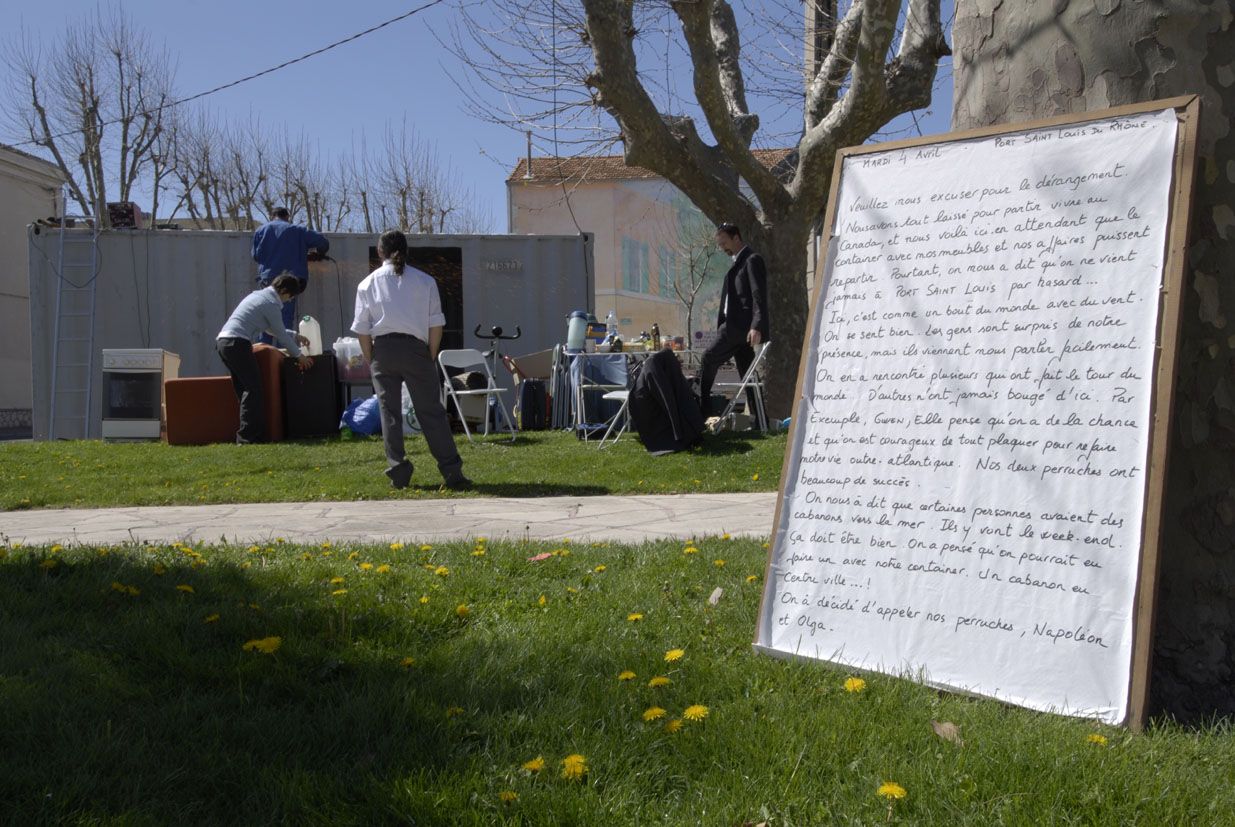 Mardi 4 Avril. Port Saint Louis Du Rhône.
Veuillez nous excuser pour le dérangement.
Nous avons tout laissé pour partir vivre au
Canada, et nous voilà ici en attendant que le
container avec nos meubles et nos affaires puissent
repartir. Pourtant, on nous a dit qu'on ne vient
jamais à Port Saint Louis par hasard...
Ici, c'est comme un bout du monde avec du vent.
On se sent bien. Les gens sont surpris de notre
présence, mais ils viennent nous parler facilement.
On en a rencontré plusieurs qui ont fait le tour du
monde. D'autres n'ont jamais bougé d'ici. Par
Exemple, Gwen, Elle pense qu'on a de la chance
et qu'on est courageux de tout plaquer pour refaire
notre vie outre-atlantique. Nos deux perruches ont
beaucoup de succès.
On nous à dit que certaines personnes avaient des
cabanons vers la mer. Ils y vont le week-end.
Ça doit être bien. On a pensé qu'on pourrait en
faire un avec notre container. Un cabanon en
Centre ville...!
On à décidé d'appeler nos perruches, Napoléon
et Olga.